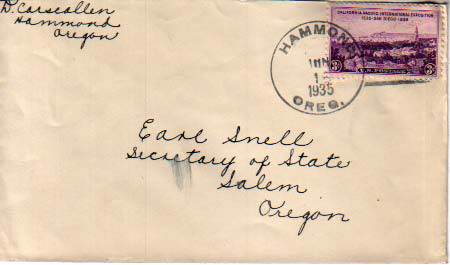 D. Carscallen
Hammond
Oregon
CALIFORNIA PACIFIC INTERNATIONAL EXPOSITION
1935 · SAN DIEGO · 1936
3¢ U.S. POSTAGE 3¢
HAMMOND
JUN
1
1935
OREG.
Earl Snell
Secretary of State
Salem
Oregon